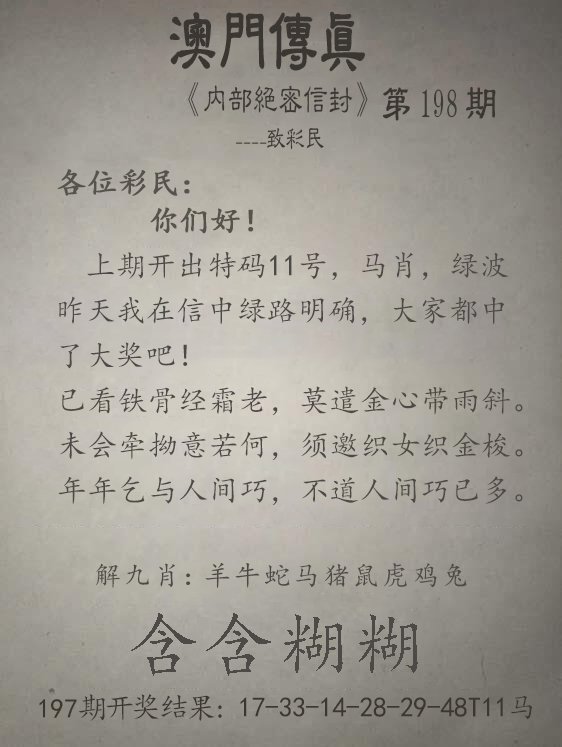 澳門傳真
《内部絕密信封》第198期
----致彩民
各位彩民：
你们好！
上期开出特码11号，马肖，绿波
昨天我在信中绿路明确，大家都中
了大奖吧！
已看铁骨经霜老，莫遣金心带雨斜。
未会牵拗意若何，须邀织女织金梭。
年年乞与人间巧，不道人间巧已多。
解九肖：羊牛蛇马猪鼠虎鸡兔
含含糊糊
197期开奖结果：17-33-14-28-29-48T11马